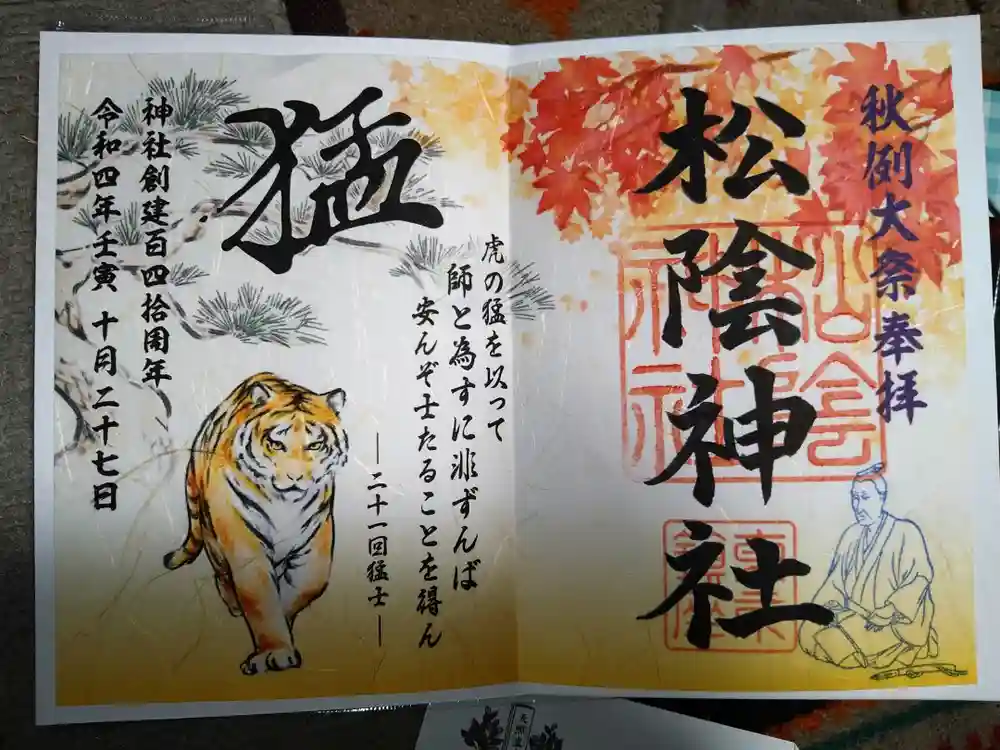 秋例大祭奉拝
松陰神社
猛
虎の猛を以って
師と為すに非ずんば
安んぞ士たることを得ん
―二十一回猛士―
神社創建百四拾周年
令和四年壬寅 十月二十七日